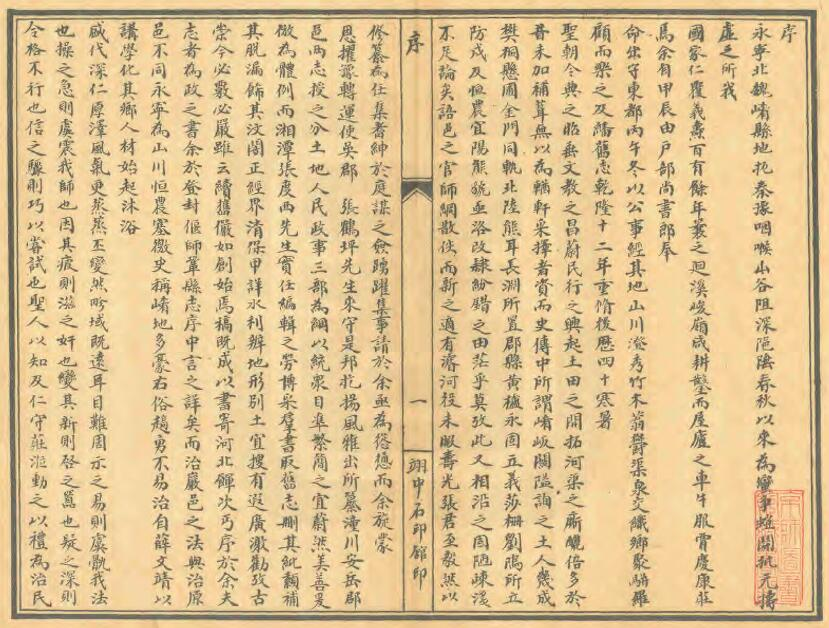 序
永寧北魏崤縣地扼秦豫咽喉山谷阻深阨隘春秋以來為
虛之所我
國家仁覆義燾百有餘年曩之迴溪峻嶺咸耕鑿而屋廬之車牛服賈慶康莊
焉余自甲辰由戶部尚書郎奉
命出守東都丙午冬以公事經其地山川澄秀竹木蓊鬱渠泉交織鄉聚駢羅
顧而樂之及繙舊志乾隆十二年重脩後歷四十寒暑
聖朝令典之昭垂文教之昌蔚民行之興起土田之開拓河渠之疏醲倍多於
昔未加補葺無以為輶軒采擇者資而史傳中所謂崤岅關隘詢之土人幾成
樊桐懸圃金門同軌北陸熊耳長淵所置郡縣黃櫨永固五羲莎柵劉隝所立
防戍及恒農宜陽熊
洛改隸紛錯之由茫乎莫攷此又相沿之固陋
不足論矣語邑之官師綱散佚而新之適有濬河役未暇壽光張君至毅然以
序
一
翊中石印館印
修纂為任集耆紳於庭謀之僉踴躍集事請於余亟為慫恿而余旋蒙
恩擢豫轉運使吳郡 張鶴坪先生來守是邦扢揚風雅出所纂潼川安岳郡
邑兩志授之分土地人民政事三部為綱以統眾目準繁簡之宜蔚然美善爰
倣為體例而湘潭張度西先生實任編輯之勞博采羣書取舊志刪其紕纇補
其脫漏飾其汶闇正經界清保甲詳水利辨地形別土宜搜有遐廣激勸攷古
崇今必覈必嚴雖云續舊儼如創始焉稿既成以書寄河北鐔次丐序於余夫
志者為政之書余於登封偃師鞏縣志序中言之詳矣而治嚴邑之法與治原
邑不同永寧為山川恒農塞徼史稱崤地多豪右俗趫勇不易治自薛文靖以
講學化其鄉人材始起沐浴
盛代深仁厚澤風氣更蒸蒸丕變然畛域既遠耳目難周示之易則虞翫我法
也操之急則虞震我師也因其疲則滋之奸也變其新則啓之囂也疑之深則
令格不行也信之驟則巧以嘗試也聖人以知及仁守莊涖動之以禮為治民